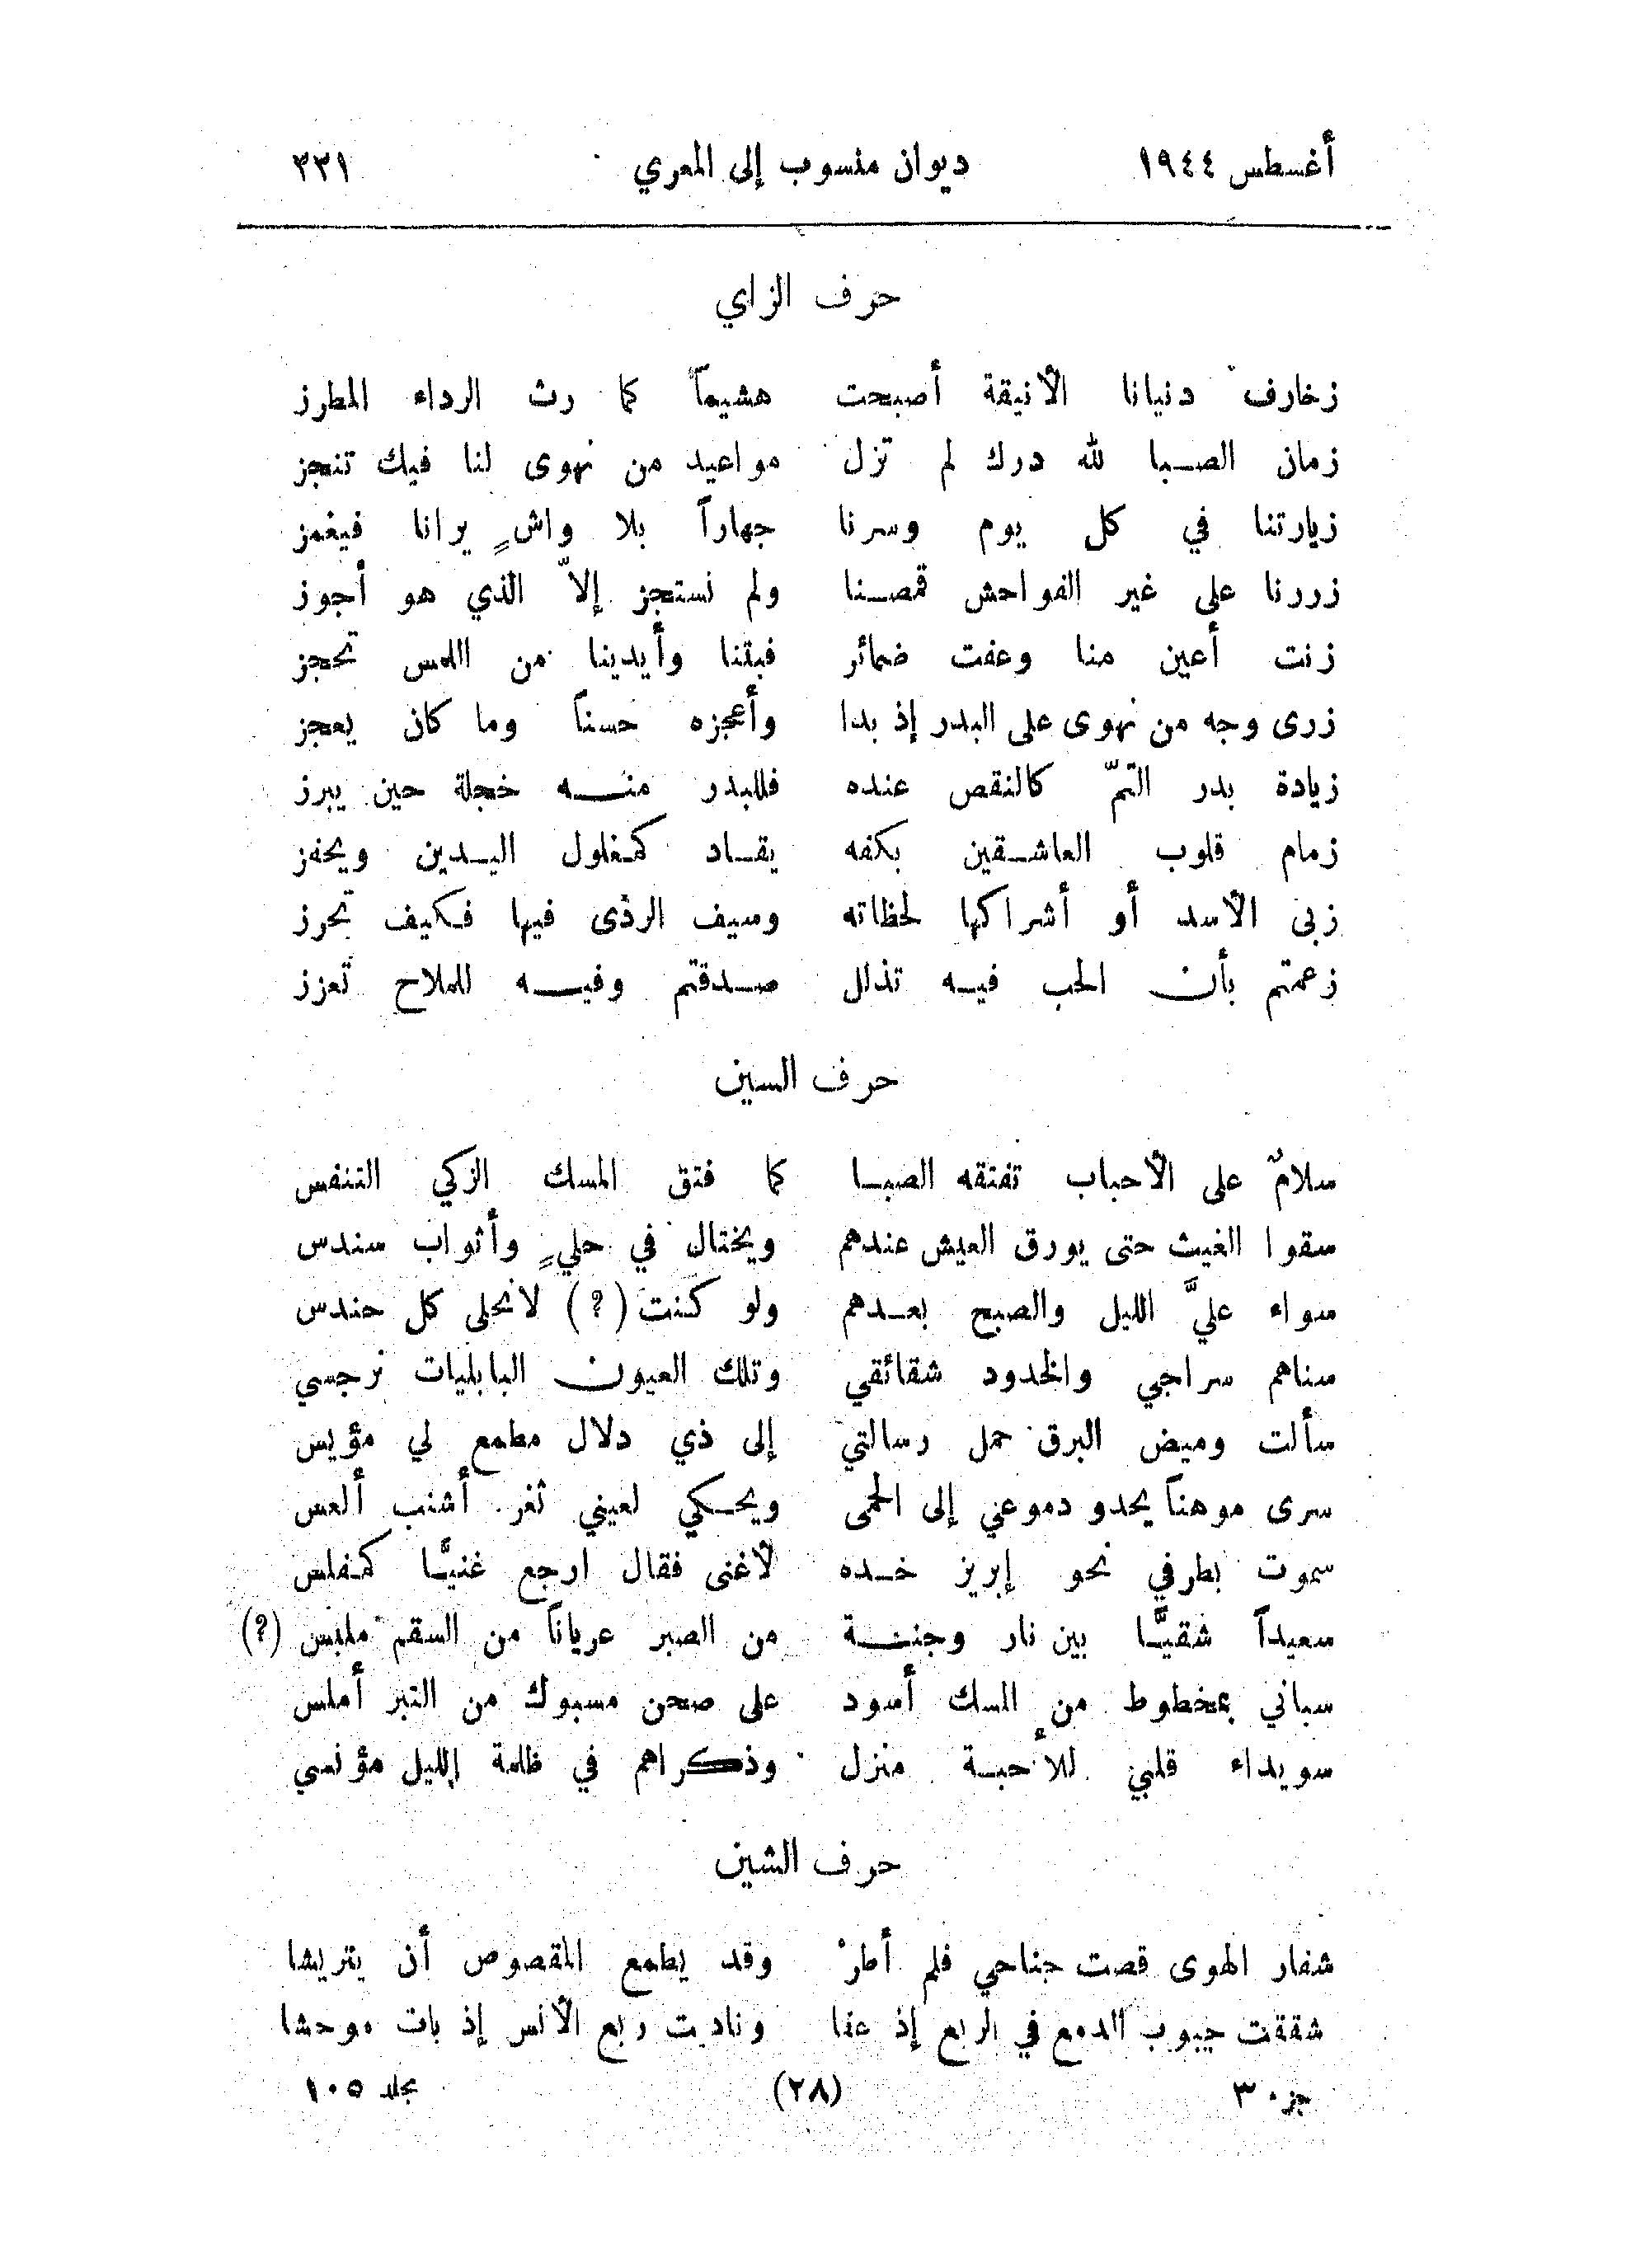 أغسطس ١٩٤٤ ديوان منسوب إلى المعري ٣٣١
حرف الزاي
زخارف دنيانا الأنيقة أصبحت هشيماً كما رث الرداء المطرز
زمان الصبا لله درك لم تزل مواعيد من نهوى لنا فيك تنجز
زيارتنا في كل يوم وسرنا جهاراً بلا واشٍ يرانا فيغمز
زررنا على غير الفواحش قمصنا ولم نستجز إلاّ الذي هو أجوز
زنت أعين منا وعفت ضمائر فبتنا وأيدينا من اللمس تحجز
زرى وجه من نهوى على البدر إذ بدا وأعجزه حسناً وما كان يعجز
زيادة بدر التمّ كالنقص عنده فللبدر منه خجلة حين يبرز
زمام قلوب العاشقين بكفه يقاد كمغلول اليدين ويحفز
زبى الأسد أو أشراكها لحظاته وسيف الردى فيها فكيف تحرز
زعمتم بأن الحب فيه تذلل صدقتم وفيه للملاح تعزز
حرف السين
سلامٌ على الأحباب تفتقه الصبا كما فتق المسك الزكي التنفس
سقوا الغيث حتى يورق العيش عندهم ويختال في حليٍ وأثواب سندس
سواء عليَّ الليل والصبح بعدهم ولو كنت (؟) لانجلى كل حندس
سناهم سراجي والخدود شقائقي وتلك العيون البابليات نرجسي
سألت وميض البرق حمل رسالتي إلى ذي دلال مطمع لي مؤيس
سرى موهناً يحدو دموعي إلى الحمى ويحكي لعيني ثغر أشنب ألعس
سموت بطرفي نحو إبريز خده لأغنى فقال ارجع غنيًّا كمفلس
سعيداً شقيًّا بين نار وجنة من الصبر عرياناً من السقم ملبس (؟)
سباني بمخطوط من المسك أسود على صحن مسبوك من التبر أملس
سويداء قلبي للأحبة منزل وذكراهم في ظلمة الليل مؤنسي
حرف الشين
شفار الهوى قصت جناحي فلم أطرْ وقد يطمع المقصوص أن يتريشا
شققت جيوب الدمع في الربع إذ عفا وناديت ربع الأنس إذ بات موحشا
جزء ٣ (٢٨) مجلد ١٠٥